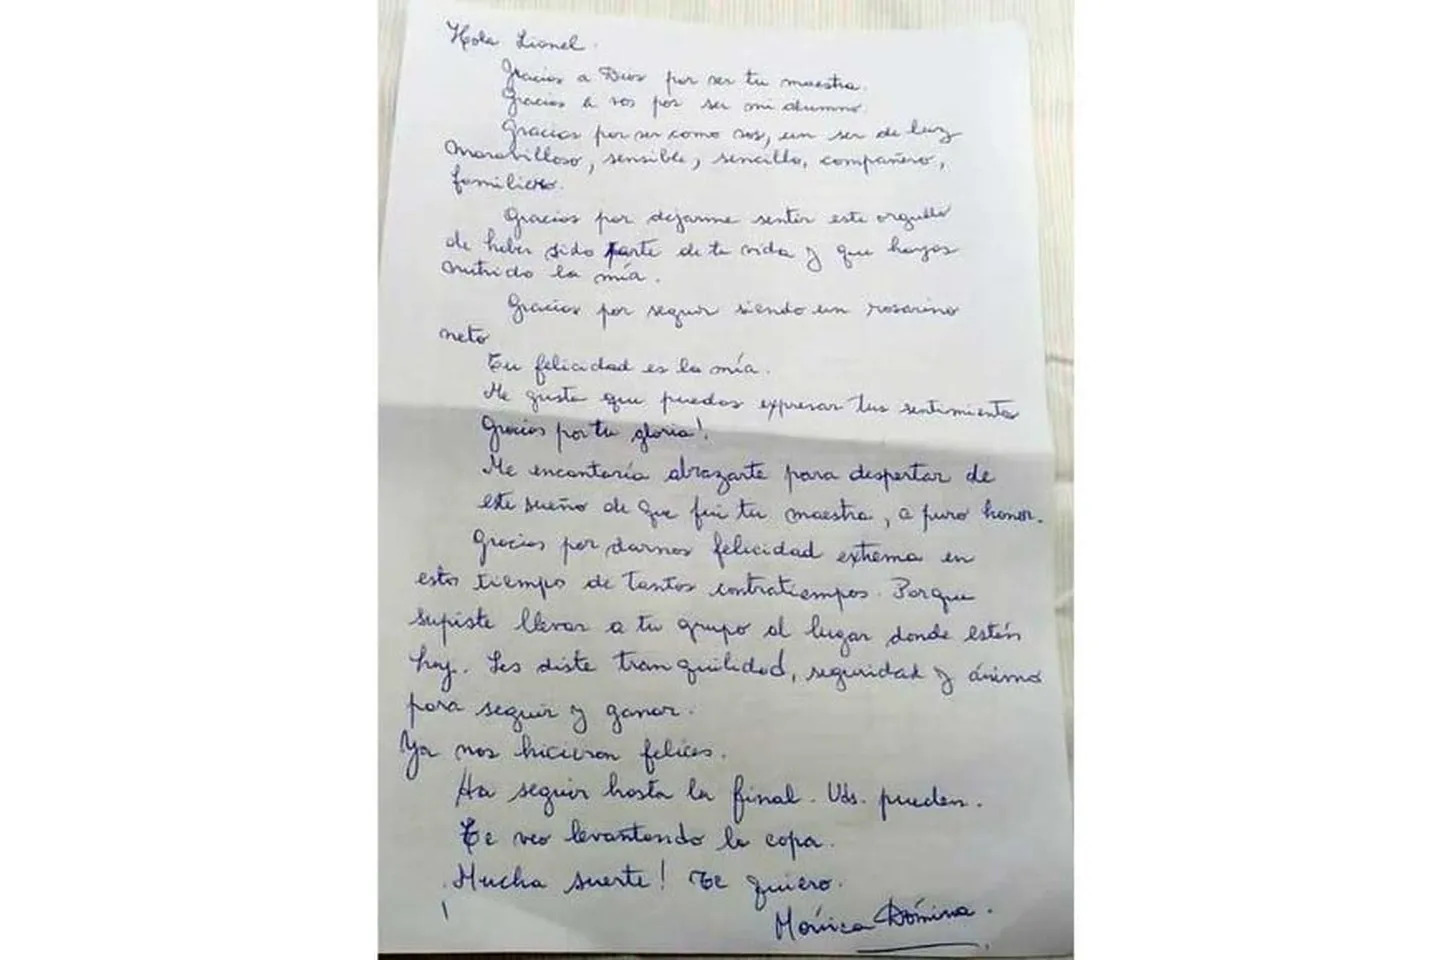 Hola Lionel.
Gracias a Dios por ser tu maestra.
Gracias a vos por ser mi alumno.
Gracias por ser como sos, un ser de luz
maravilloso, sensible, sencillo, compañero,
familiero.
Gracias por dejarme sentir este orgullo
de haber sido parte de tu vida y que hayas
nutrido la mía.
Gracias por seguir siendo un rosarino
neto
Tu felicidad es la mía.
Me gusta que puedas expresar tus sentimientos
Gracias por tu gloria!
Me encantaría abrazarte para despertar de
este sueño de que fui tu maestra, a puro honor.
Gracias por darnos felicidad extrema en
este tiempo de tantos contratiempos. Porque
supiste llevar a tu grupo al lugar donde están
hoy. Les diste tranquilidad, seguridad y ánimo
para seguir y ganar.
Ya nos hicieron felices.
Ha seguir hasta la final. Uds. pueden.
Te veo levantando la copa.
¡Mucha suerte! Te quiero.
Mónica Dómina.